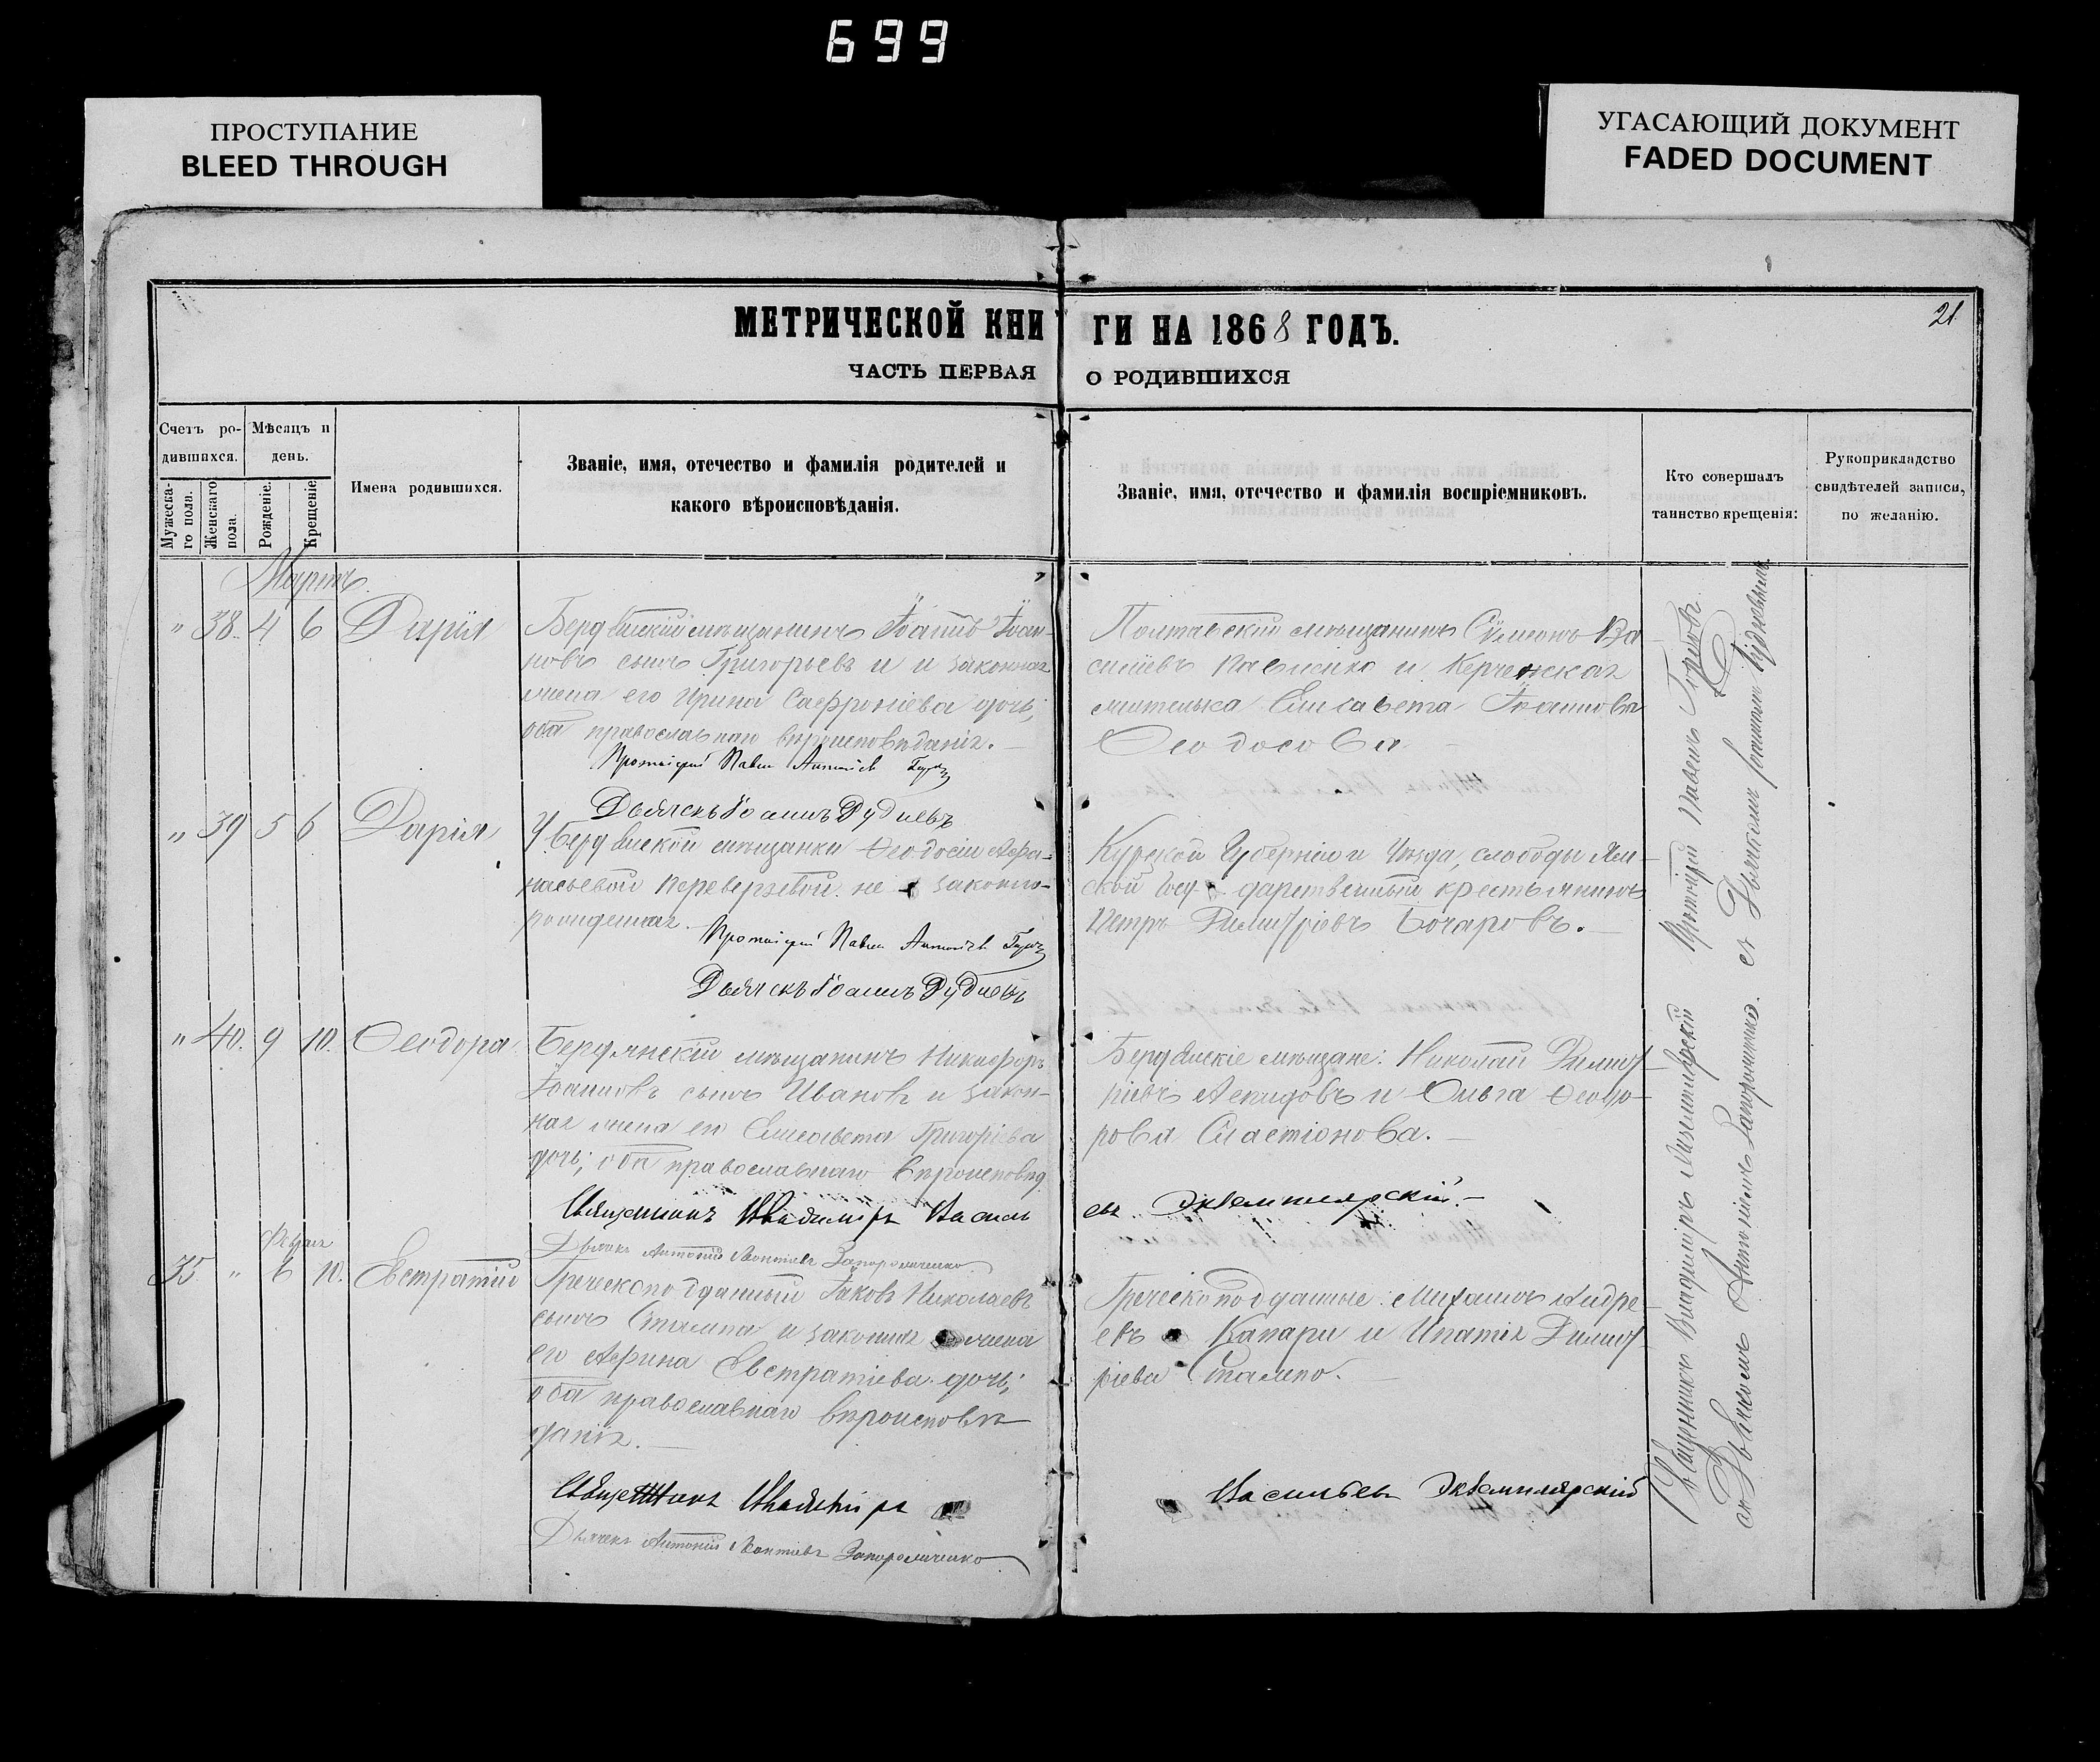 699
ПРОСТУПАНИЕ
BLEED THROUGH
УГАСАЮЩИЙ ДОКУМЕНТ
FADED DOCUMENT
21
МЕТРИЧЕСКОЙ КНИГИ НА 1868 ГОДЪ.
ЧАСТЬ ПЕРВАЯ О РОДИВШИХСЯ
Счетъ ро-
дившихся.
Мужеска-
го пола.
Женскаго
пола.
Мѣсяцъ и
день.
Рожденіе.
Крещеніе
Имена родившихся.
Званіе, имя, отечество и фамилія родителей и
какого вѣроисповѣданія.
Званіе, имя, отечество и фамилія воспріемниковъ.
Кто совершалъ
таинство крещенія:
Рукоприкладство
свидѣтелей записи,
по желанію.
Мартъ
" 38. 4 6 Дарія
Бердянскій мѣщанинъ Іоаннъ Іоан-
новъ сынъ Григорьевъ и законная
жена его Ирина Сафроніева дочь;
оба православнаго вѣроисповѣданія.
Протоіерей Павелъ
Дьячекъ Іоаннъ Дудневъ
Полтавскій мѣщанинъ Сѵмеонъ Ва-
силіевъ Павленко и Керченская
жителька Елисавета Іоаннова
Ѳеодосова
" 39 5 6 Дарія
У Бердянской мѣщанки Ѳеодосіи Аѳа-
насьевой Переверзевой не законно-
рожденная.
Протоіерей Павелъ
Дьячекъ Іоаннъ Дудневъ
Курской Губерніи и Уѣзда, слободы Ям-
ской Госу-дарственный крестьянинъ
Петръ Димитріевъ Бочаровъ.
" 40. 9 10. Ѳеодора
Бердянскій мѣщанинъ Никифоръ
Іоанновъ сынъ Ивановъ и закон-
ная жена его Елисавета Григоріева
дочь; оба православнаго вѣроисповѣд.
Священникъ Владиміръ Василь
евъ Экземплярскій.
Дьячекъ Антоній Леонтіевъ Запорожченко
Бердянскіе мѣщане: Николай Димит-
ріевъ и Ольга Ѳеодо-
рова Сластіонова.
Февраля
35 " 6 10. Евстратій
Греческоподданный Іаковъ Николаевъ
сынъ и законная жена
его Евстратіева дочь;
оба православнаго вѣроисповѣ-
данія.
Священникъ Владиміръ
Васильевъ Экземплярскій
Дьячекъ Антоній Леонтіевъ Запорожченко
Греческоподданные: Михаилъ Андре-
евъ Капари и Ипатія Димит-
ріева
Священникъ Владиміръ Экземплярскій
съ Дьячкомъ Антоніемъ Запорожченко.
Протоіерей Павелъ
съ Дьячкомъ Іоанномъ Дудневымъ